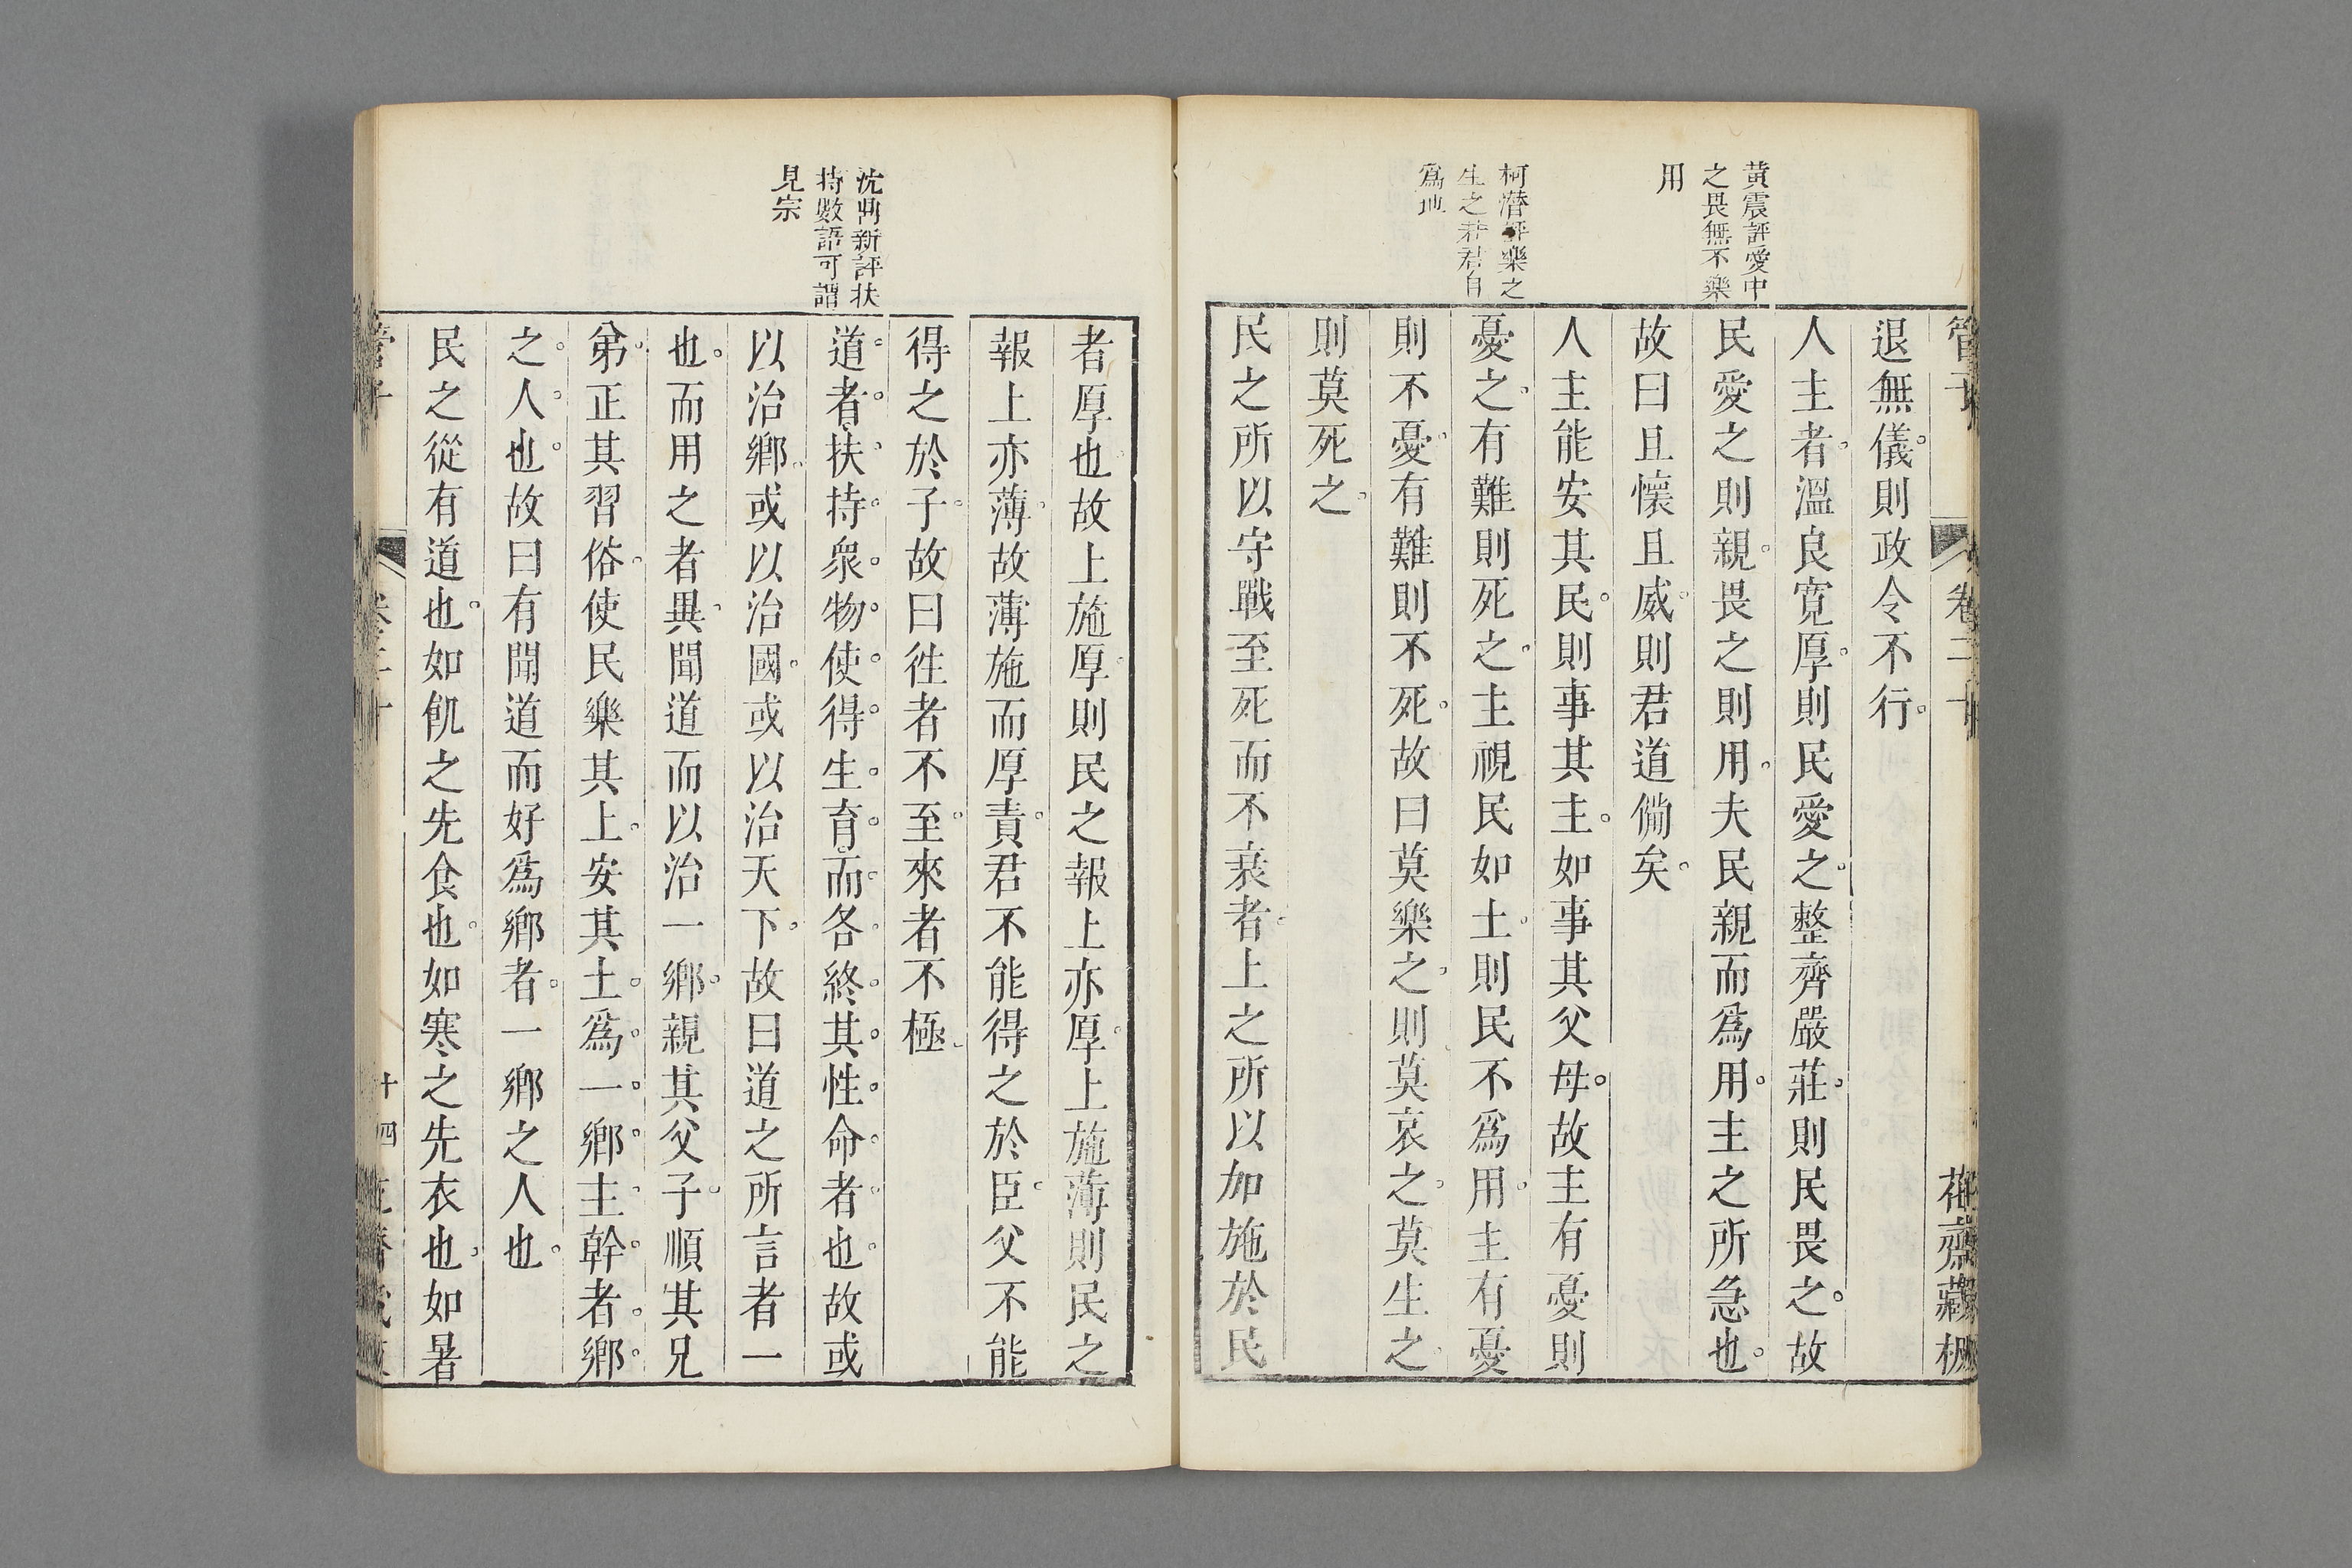 黃震評愛中
之畏無不樂
用
柯潛評樂之
生之若君自
爲地
管子
卷二十
花齋藏板
退無儀則政令不行
人主者溫良寬厚則民愛之整齊嚴莊則民畏之故
民愛之則親畏之則用夫民親而爲用主之所急也
故曰且懷且威則君道備矣
人主能安其民則事其主如事其父母故主有憂則
憂之有難則死之主視民如土則民不爲用主有憂
則不憂有難則不死故曰莫樂之則莫哀之莫生之
則莫死之
民之所以守戰至死而不衰者上之所以加施於民
沈鼎新評扶
持數語可謂
見宗
者厚也故上施厚則民之報上亦厚上施薄則民之
報上亦薄故薄施而厚責君不能得之於臣父不能
得之於子故曰徃者不至來者不極
道者扶持衆物使得生育而各終其性命者也故或
以治鄉或以治國或以治天下故曰道之所言者一
也而用之者異聞道而以治一鄉親其父子順其兄
弟正其習俗使民樂其上安其土爲一鄉主幹者鄉
之人也故曰有聞道而好爲鄉者一鄉之人也
民之從有道也如飢之先食也如寒之先衣也如暑
管子
卷二十
十四